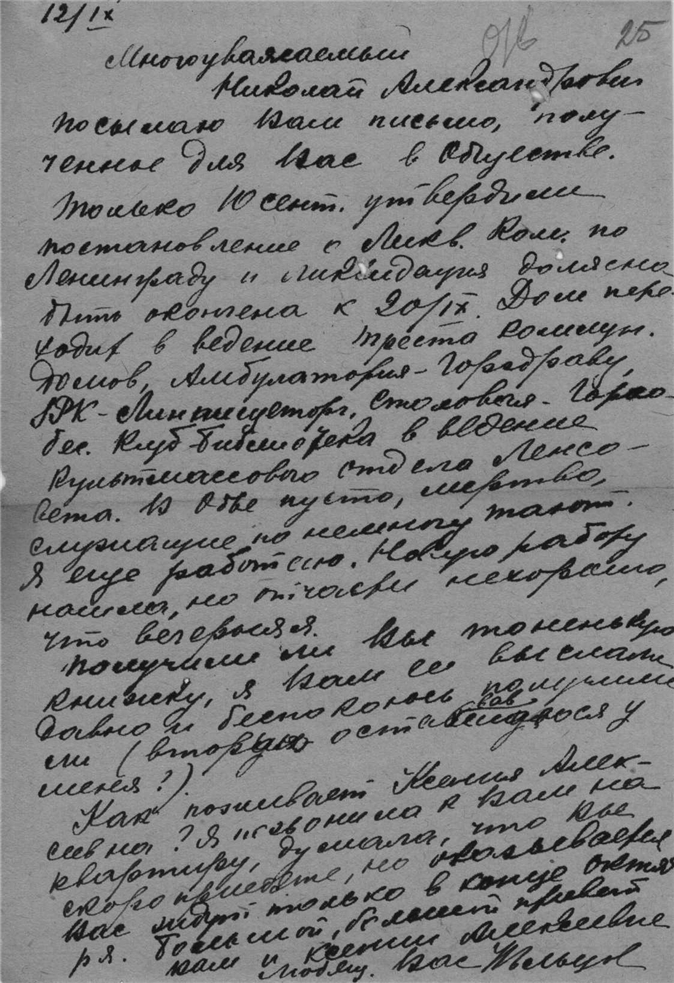 12/IX
25
Многоуважаемый
Николай Александрович
посылаю Вам письмо, полу-
ченное для Вас в Обществе.
Только 10 сент. утвердили
постановление о Ликв. Ком. по
Ленинграду и ликвидация должна
быть окончена к 20/IX. Дом пере-
ходит в ведение треста коммун.
домов, Амбулатория - Горздраву,
столовая -
Клуб-библиотека в ведение
Культмассового отдела Ленсо-
вета. В О-ве пусто, мертво,
служащие по немногу тают.
Я еще работаю. Новую работу
нашла, но отчасти нехорошо,
что вечерняя.
Получили ли Вы тоненькую
книжку, я Вам ее выслала
давно и беспокоюсь получили
ли (вторая у
меня?).
Как поживает Ксения Алек-
сивна? Я звонила к Вам на
квартиру, думала, что Вы
скоро приедете, но оказывается
Вас ждут только в конце октяб
ря. Большой, большой привет
Вам и Ксении Алексеевне
Любящ. Вас